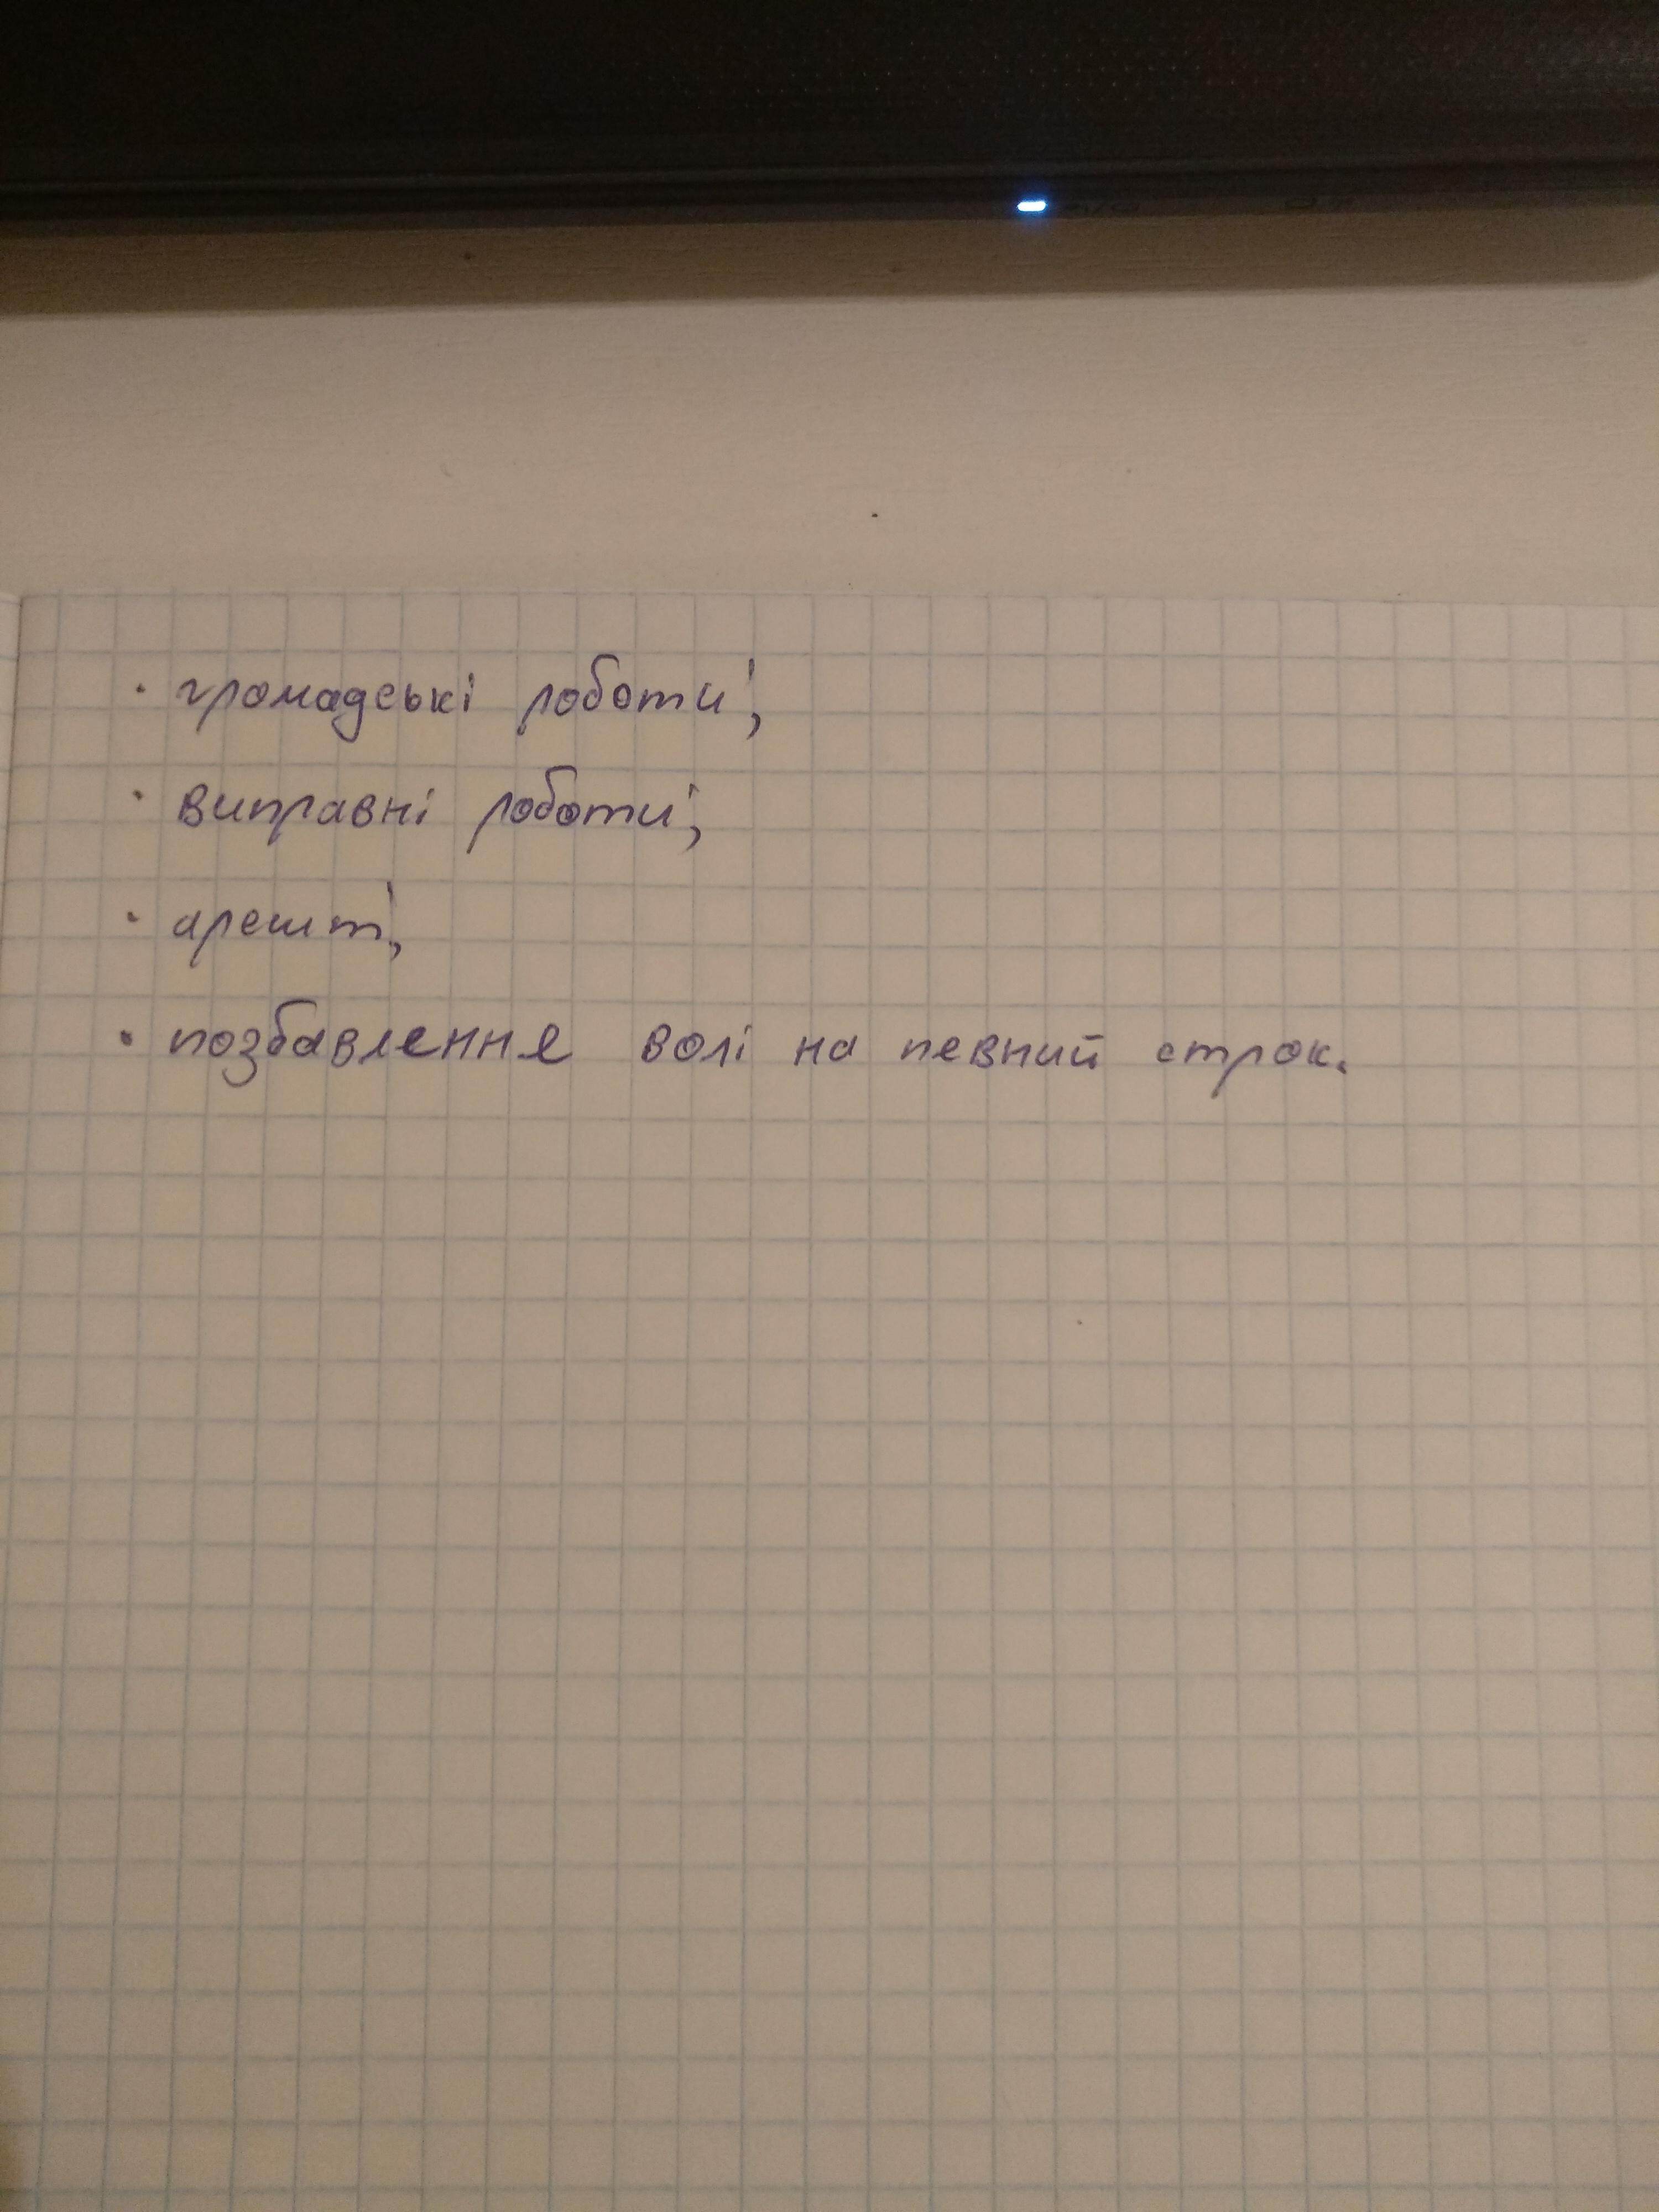 · громадські роботи;
· виправні роботи;
· арешт;
· позбавлення волі на певний строк.